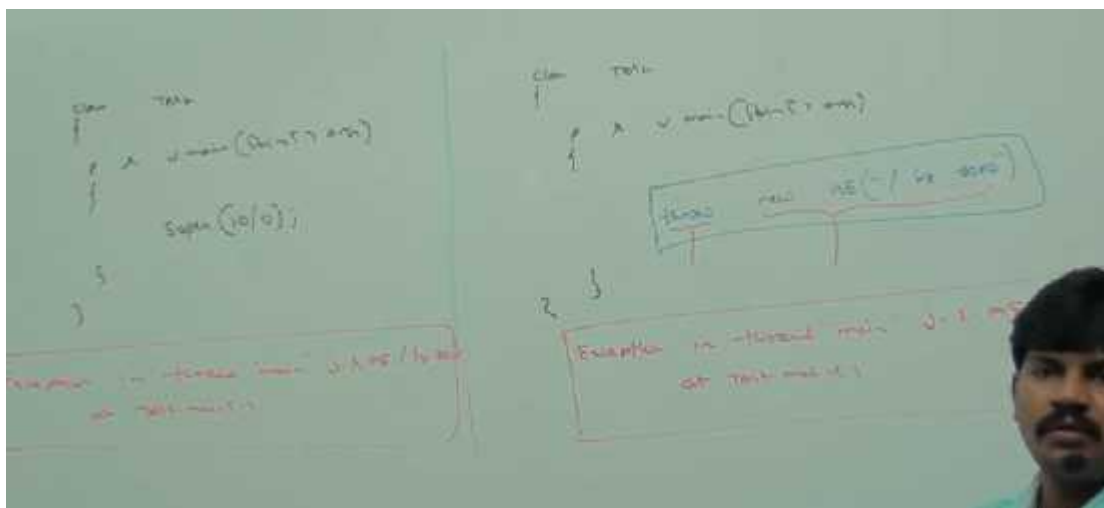 class Test
{
p s v main(String[] args)
{
Sopln(10/0);
}
}
Exception in thread main
at Test.main()
class Test
{
p s v main(String[] args)
{
throw new AE("/ by zero")
}
}
Exception in thread main
at Test.main()